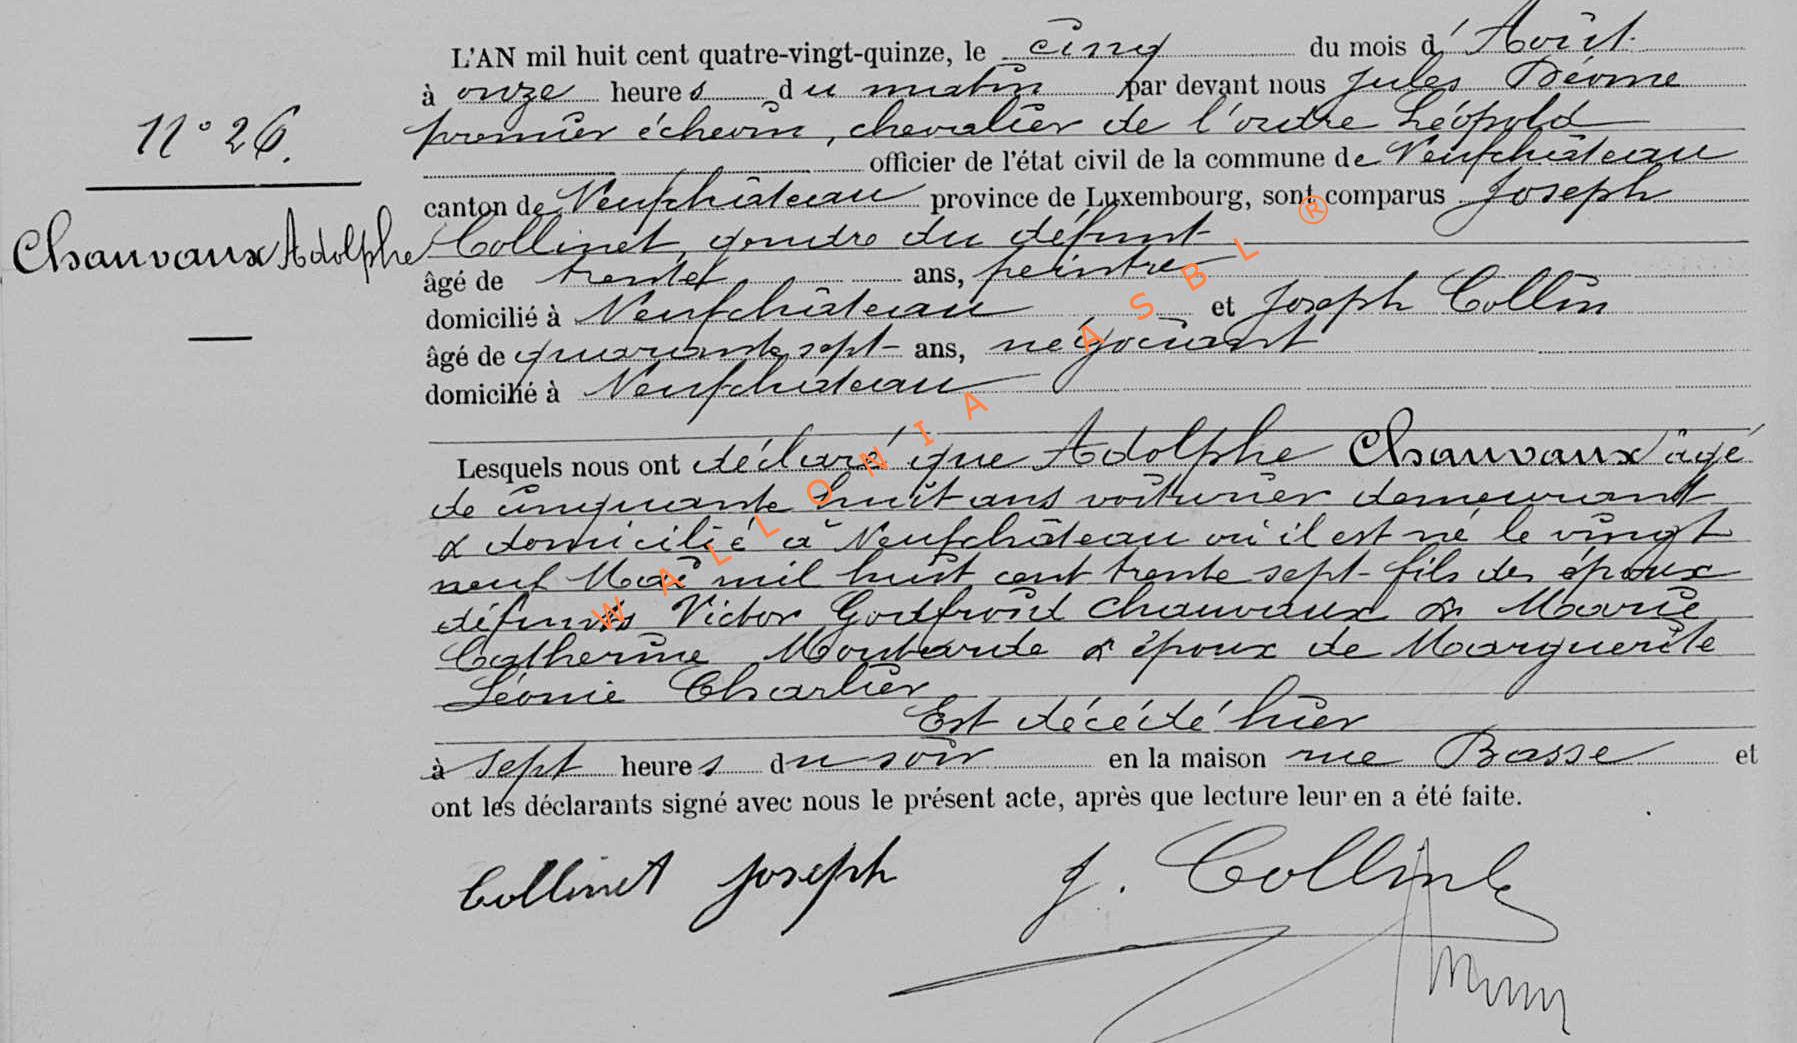 L'AN mil huit cent quatre-vingt-quinze, le cinq du mois d'Août
à onze heures du matin par devant nous Jules Déome
N° 26.
premier échevin, chevalier de l'ordre Léopold
officier de l'état civil de la commune de Neufchâteau
canton de Neufchâteau province de Luxembourg, sont comparus Joseph
Chauvaux Adolphe
Collinet, gendre du défunt
âgé de trente ans, peintre
domicilié à Neufchâteau et Joseph Collin
âgé de quarante sept ans, négociant
domicilié à Neufchâteau
Lesquels nous ont déclaré que Adolphe Chauvaux âgé
de cinquante huit ans voiturier demeurant
& domicilié à Neufchâteau où il est né le vingt
neuf Mai mil huit cent trente sept fils des époux
défunts Victor Godfroid Chauvaux & Marie
Catherine Moutarde & époux de Marguerite
Léonie Charlier
Est décédé hier
à sept heures du soir en la maison rue Basse et
ont les déclarants signé avec nous le présent acte, après que lecture leur en a été faite.
Collinet Joseph J. Collin
WALLONIA ASBL ®